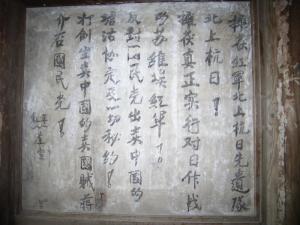 拥护红軍北上抗日先遣隊
北上抗日！
拥护真正实行对日作战
的苏维埃红軍！
反对国民党出卖中国的
塘沽协定及一切秘约！
打倒出卖中国的卖國賊蒋
介石國民党！